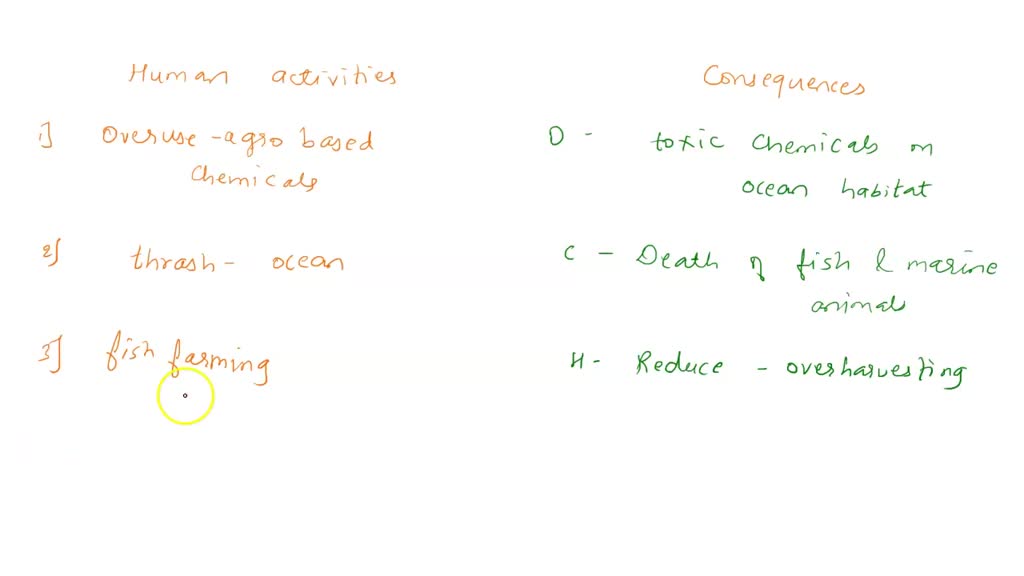 Human activities
Consequences
1] Overuse - agro based
Chemicals
D - toxic Chemicals on
ocean habitat
2] thrash - ocean
C - Death of fish & marine
animals
3] fish farming
H - Reduce - overharvesting